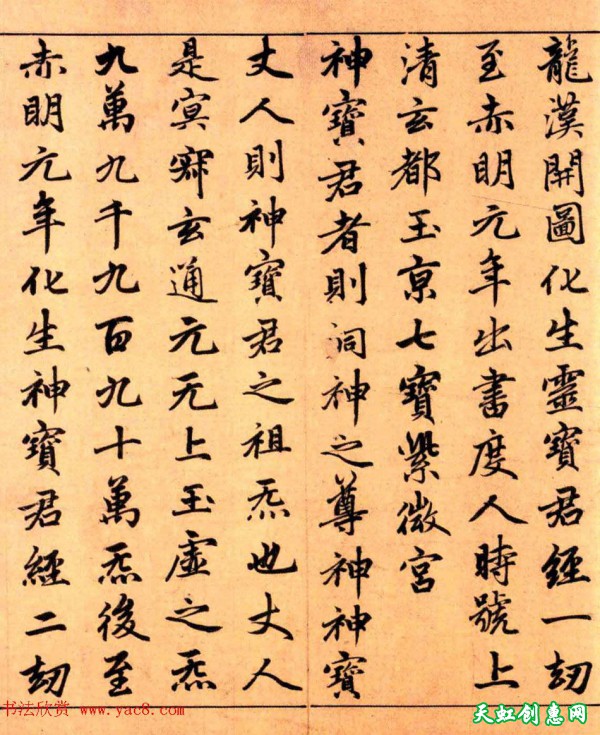 龍漢開圖化生靈寶君經一劫
至赤明元年出書度人時號上
清玄都玉京七寶紫微宮
神寶君者則洞神之尊神神寶
丈人則神寶君之祖炁也丈人
是冥寂玄通元无上玉虛之炁
九萬九千九百九十萬炁後至
赤明元年化生神寶君經二劫
书法欣赏 www.yac8.com
天虹创惠网